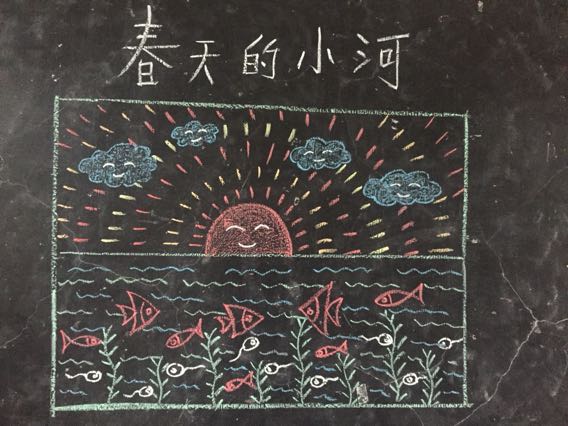 春天的小河